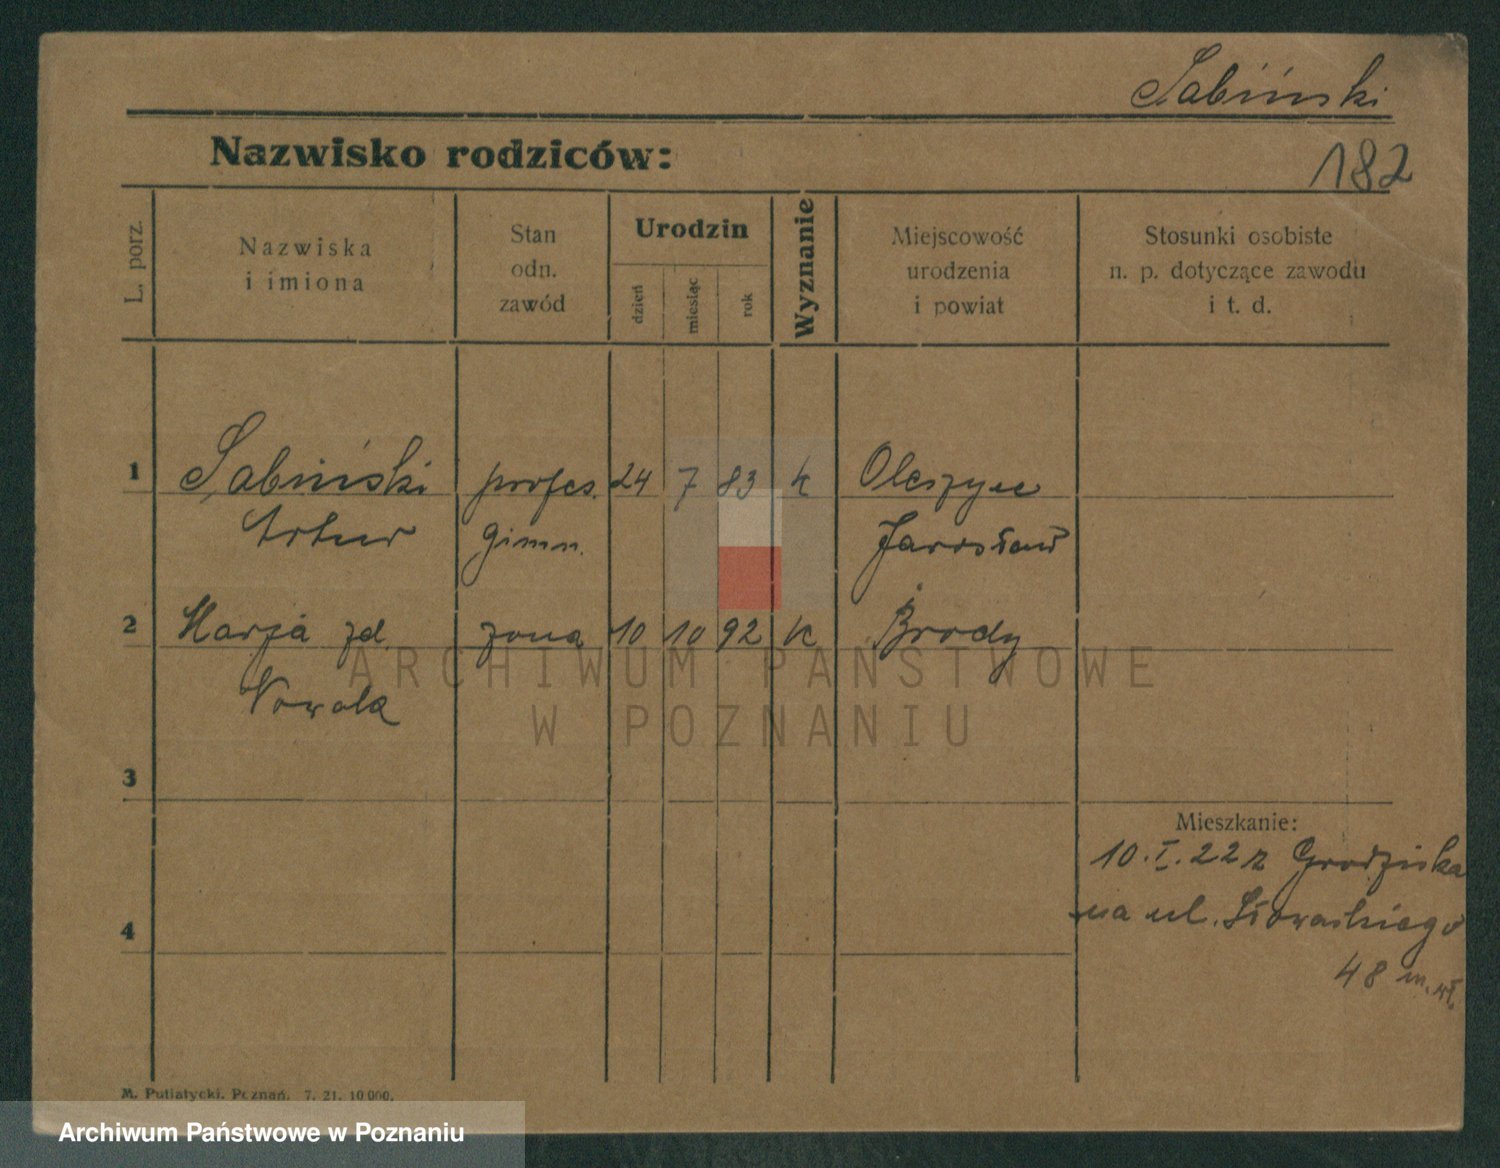 Sabiński
Nazwisko rodziców:
182
L. porz.
Nazwiska
i imiona
Stan
odn.
zawód
Urodzin
dzień
miesiąc
rok
Wyznanie
Miejscowość
urodzenia
i powiat
Stosunki osobiste
n. p. dotyczące zawodu
i t. d.
1 Sabiński profes. 24 7 83 k Oleszyce
Artur gimn. Jarosław
2 Marja zd. żona 10 10 92 k Brody
Nowak
ARCHIWUM PAŃSTWOWE
W POZNANIU
3
Mieszkanie:
10.I.22 z Grodziska
na ul. Słowackiego
4
48 m. wł.
M. Putiatycki, Poznań. 7. 21. 10 000.
Archiwum Państwowe w Poznaniu